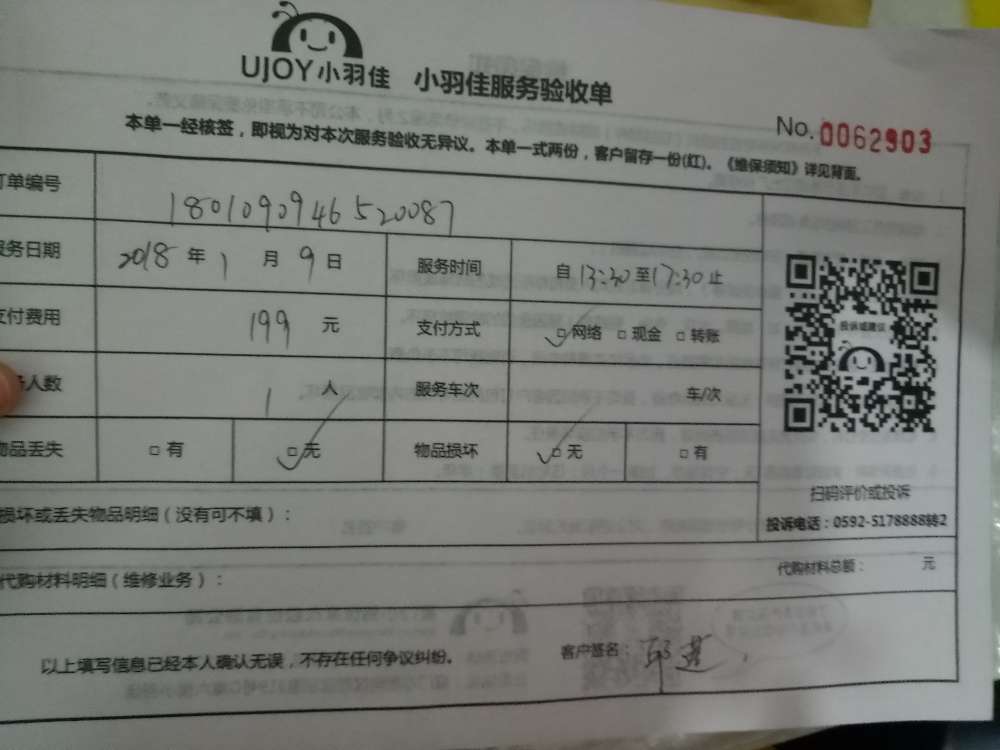 UJOY小羽佳 小羽佳服务验收单
No. 0062903
本单一经核签，即视为对本次服务验收无异议。本单一式两份，客户留存一份(红)。《维保须知》详见背面。
订单编号 1801090946520087
服务日期 2018 年 1 月 9 日 服务时间 自 13:30 至 17:30 止
支付费用 199 元 支付方式 □网络 □现金 □转账
人数 1 人 服务车次 车/次
物品丢失 □有 □无 物品损坏 □无 □有
投诉或建议
扫码评价或投诉
投诉电话：0592-5178888转2
损坏或丢失物品明细（没有可不填）：
代购材料明细（维修业务）： 代购材料总额： 元
以上填写信息已经本人确认无误，不存在任何争议纠纷。 客户签名：